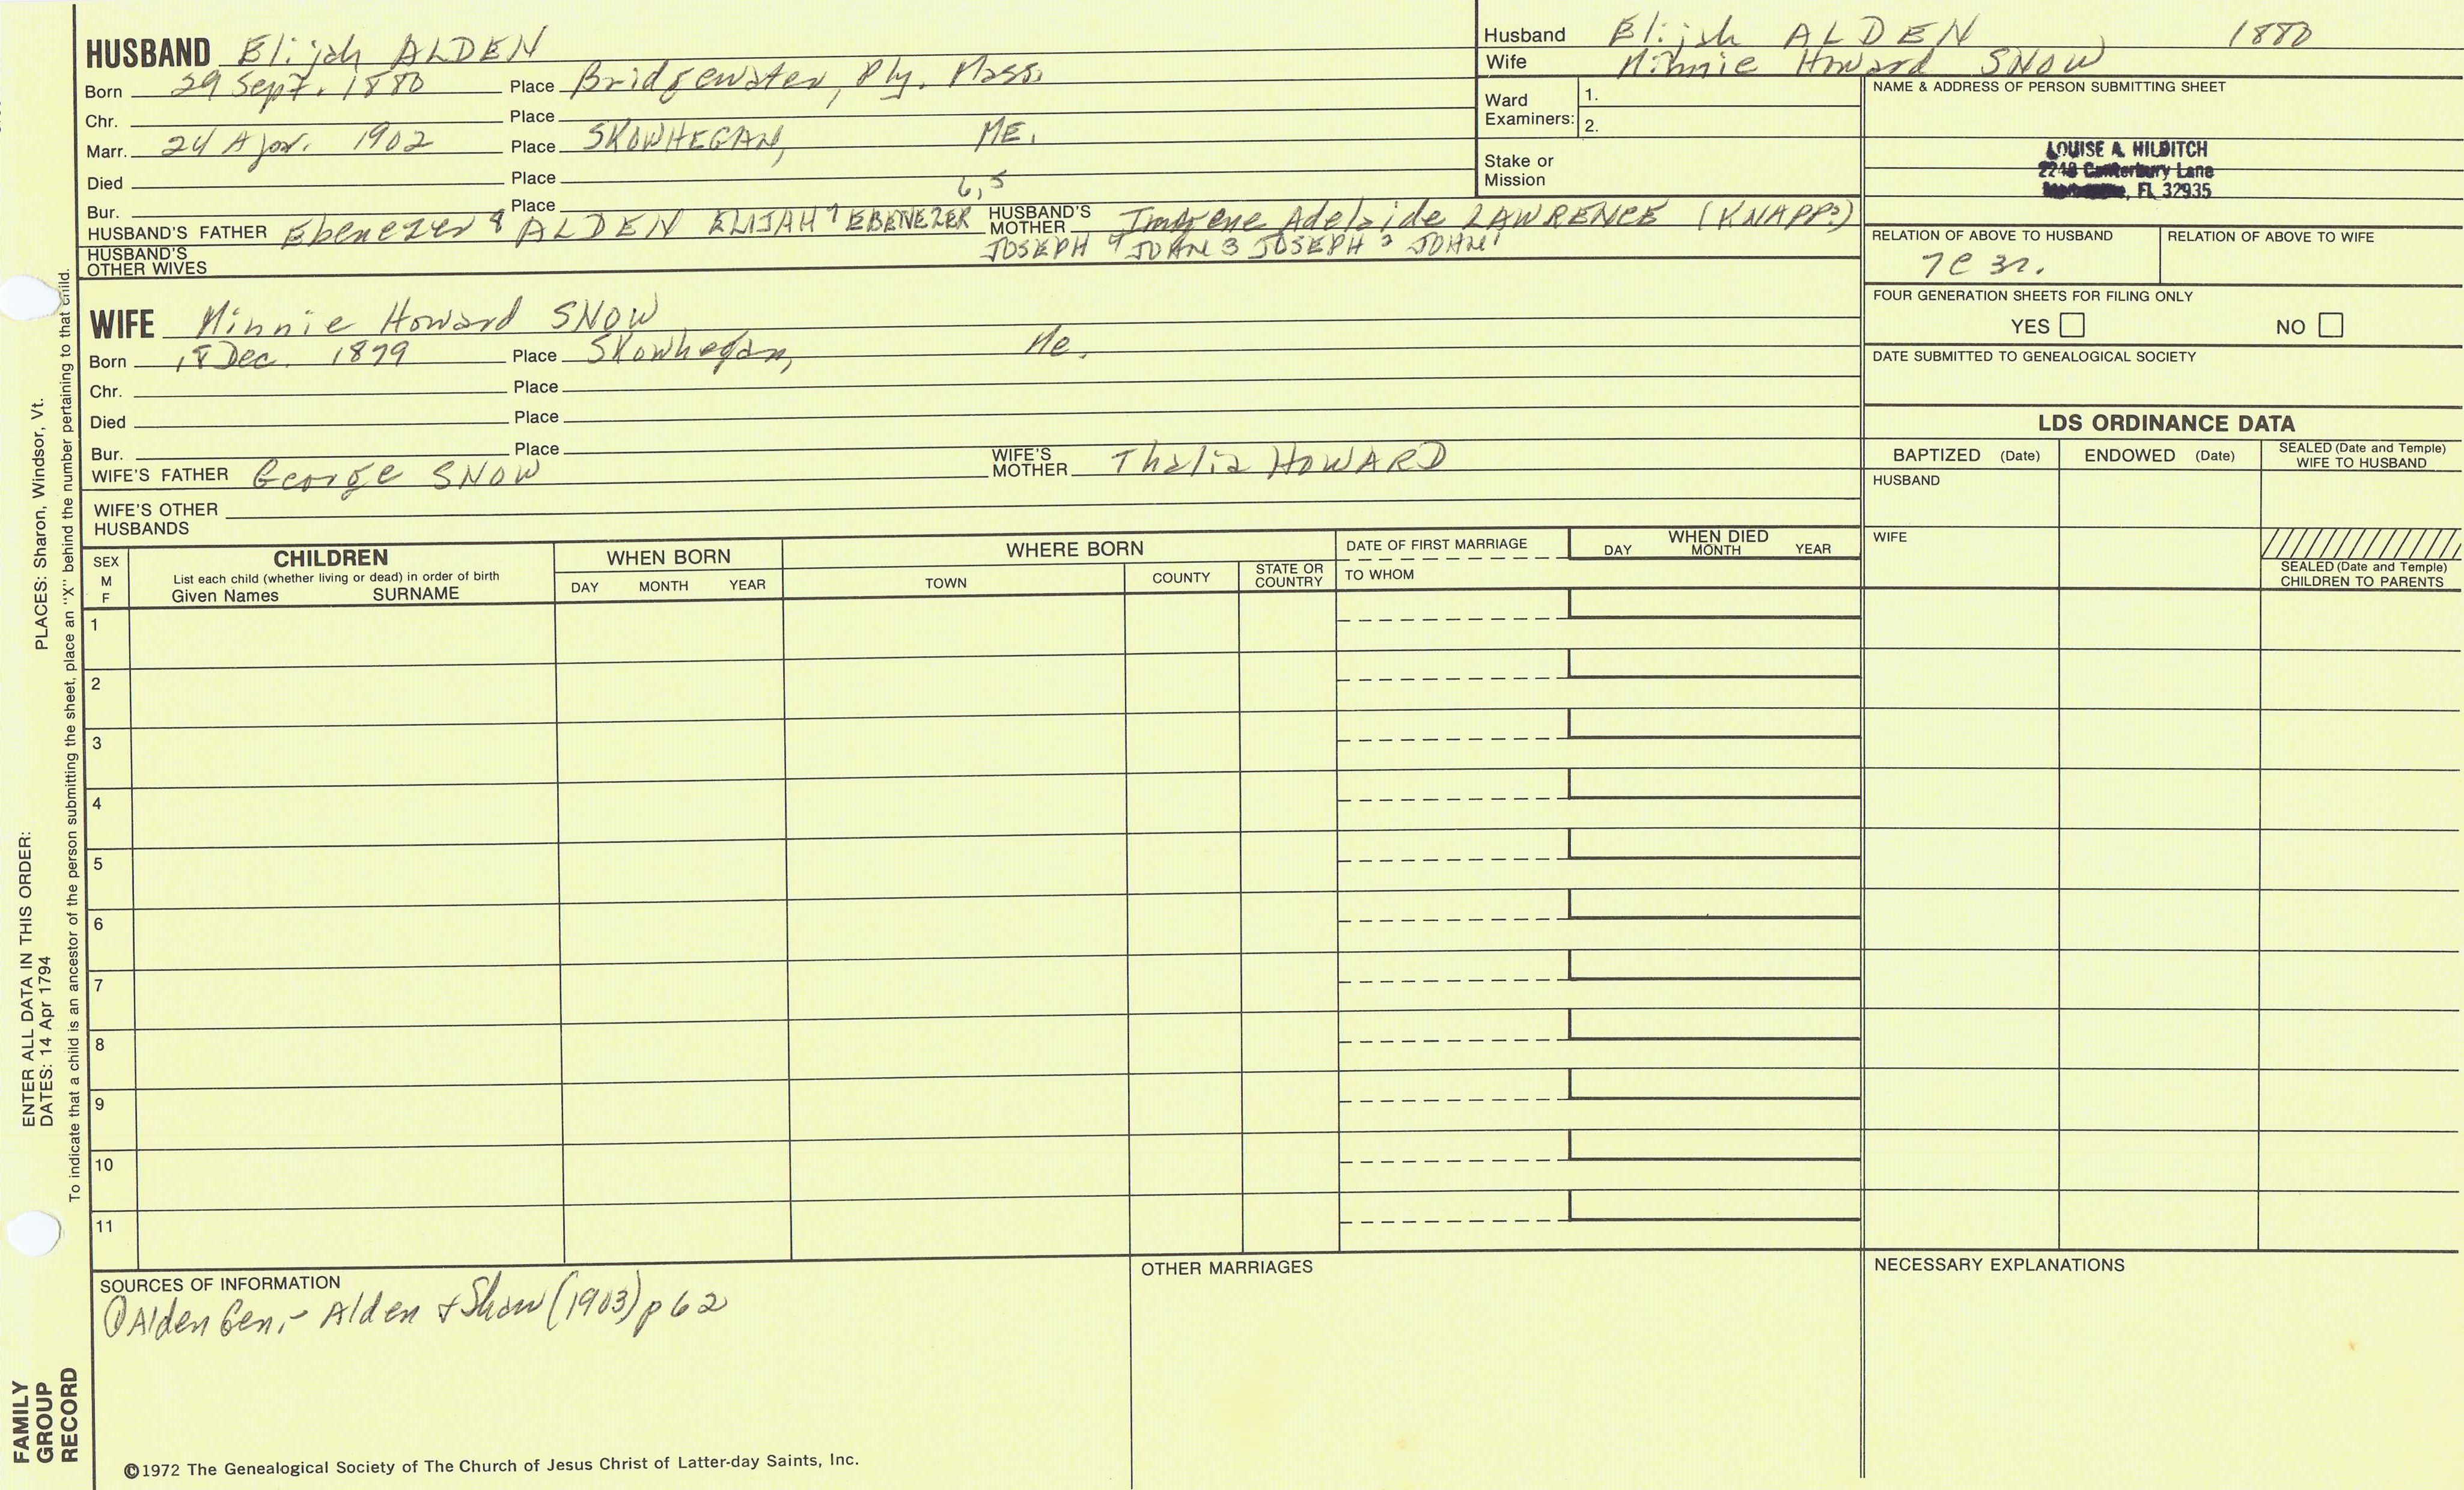 HUSBAND Elijah ALDEN
Born 29 Sept. 1880 Place Bridgewater, Ply. Mass.
Chr. Place
Marr. 24 Apr. 1902 Place SKOWHEGAN, ME.
Died Place
Bur. Place 6,5
HUSBAND'S FATHER Ebenezer 8 ALDEN ELIJAH 7 EBENEZER HUSBAND'S MOTHER Imogene Adelaide LAWRENCE (KNAPP?)
HUSBAND'S OTHER WIVES JOSEPH 4 JOHN 3 JOSEPH 2 JOHN 1
Husband Elijah ALDEN 1880
Wife Minnie Howard SNOW
Ward Examiners: 1.
2.
Stake or Mission
NAME & ADDRESS OF PERSON SUBMITTING SHEET
LOUISE A. HILDITCH
2248 Canterbury Lane
, FL 32935
RELATION OF ABOVE TO HUSBAND RELATION OF ABOVE TO WIFE
7C 3r.
FOUR GENERATION SHEETS FOR FILING ONLY
YES NO
DATE SUBMITTED TO GENEALOGICAL SOCIETY
WIFE Minnie Howard SNOW
Born 18 Dec. 1879 Place Skowhegan, Me.
Chr. Place
Died Place
Bur. Place
WIFE'S FATHER George SNOW WIFE'S MOTHER Thalia HOWARD
WIFE'S OTHER HUSBANDS
LDS ORDINANCE DATA
BAPTIZED (Date) ENDOWED (Date) SEALED (Date and Temple) WIFE TO HUSBAND
HUSBAND
WIFE
SEALED (Date and Temple) CHILDREN TO PARENTS
SEX M F
CHILDREN
List each child (whether living or dead) in order of birth
Given Names SURNAME
WHEN BORN
DAY MONTH YEAR
WHERE BORN
TOWN COUNTY STATE OR COUNTRY
DATE OF FIRST MARRIAGE
TO WHOM
WHEN DIED
DAY MONTH YEAR
1
2
3
4
5
6
7
8
9
10
11
SOURCES OF INFORMATION
① Alden Gen.- Alden & Shaw (1903) p 62
OTHER MARRIAGES
NECESSARY EXPLANATIONS
©1972 The Genealogical Society of The Church of Jesus Christ of Latter-day Saints, Inc.
FAMILY GROUP RECORD
ENTER ALL DATA IN THIS ORDER:
DATES: 14 Apr 1794
PLACES: Sharon, Windsor, Vt.
To indicate that a child is an ancestor of the person submitting the sheet, place an "X" behind the number pertaining to that child.